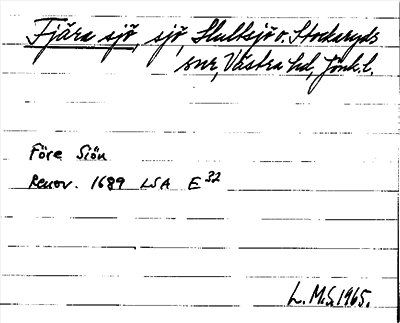 Fjära sjö, sjö, Slättsjö o. Stockaryds
snr, Västra hd, Jönk. l.
Före Siön
Renov. 1689 LSA E 32
L. M-S. 1965.